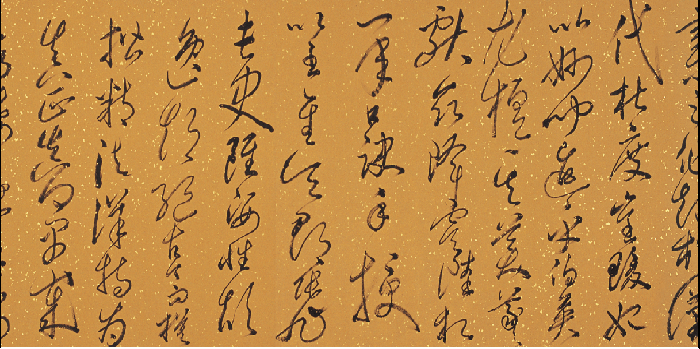 之作起於漢
代杜度崔瑗始
以妙聞迨乎伯英
尤擅其美羲
獻茲降虞陸相
承口訣手授
以至於吳郡張旭
長史雖姿性顛
逸超絕古今而模
楷精法詳特為
真正真卿早歲